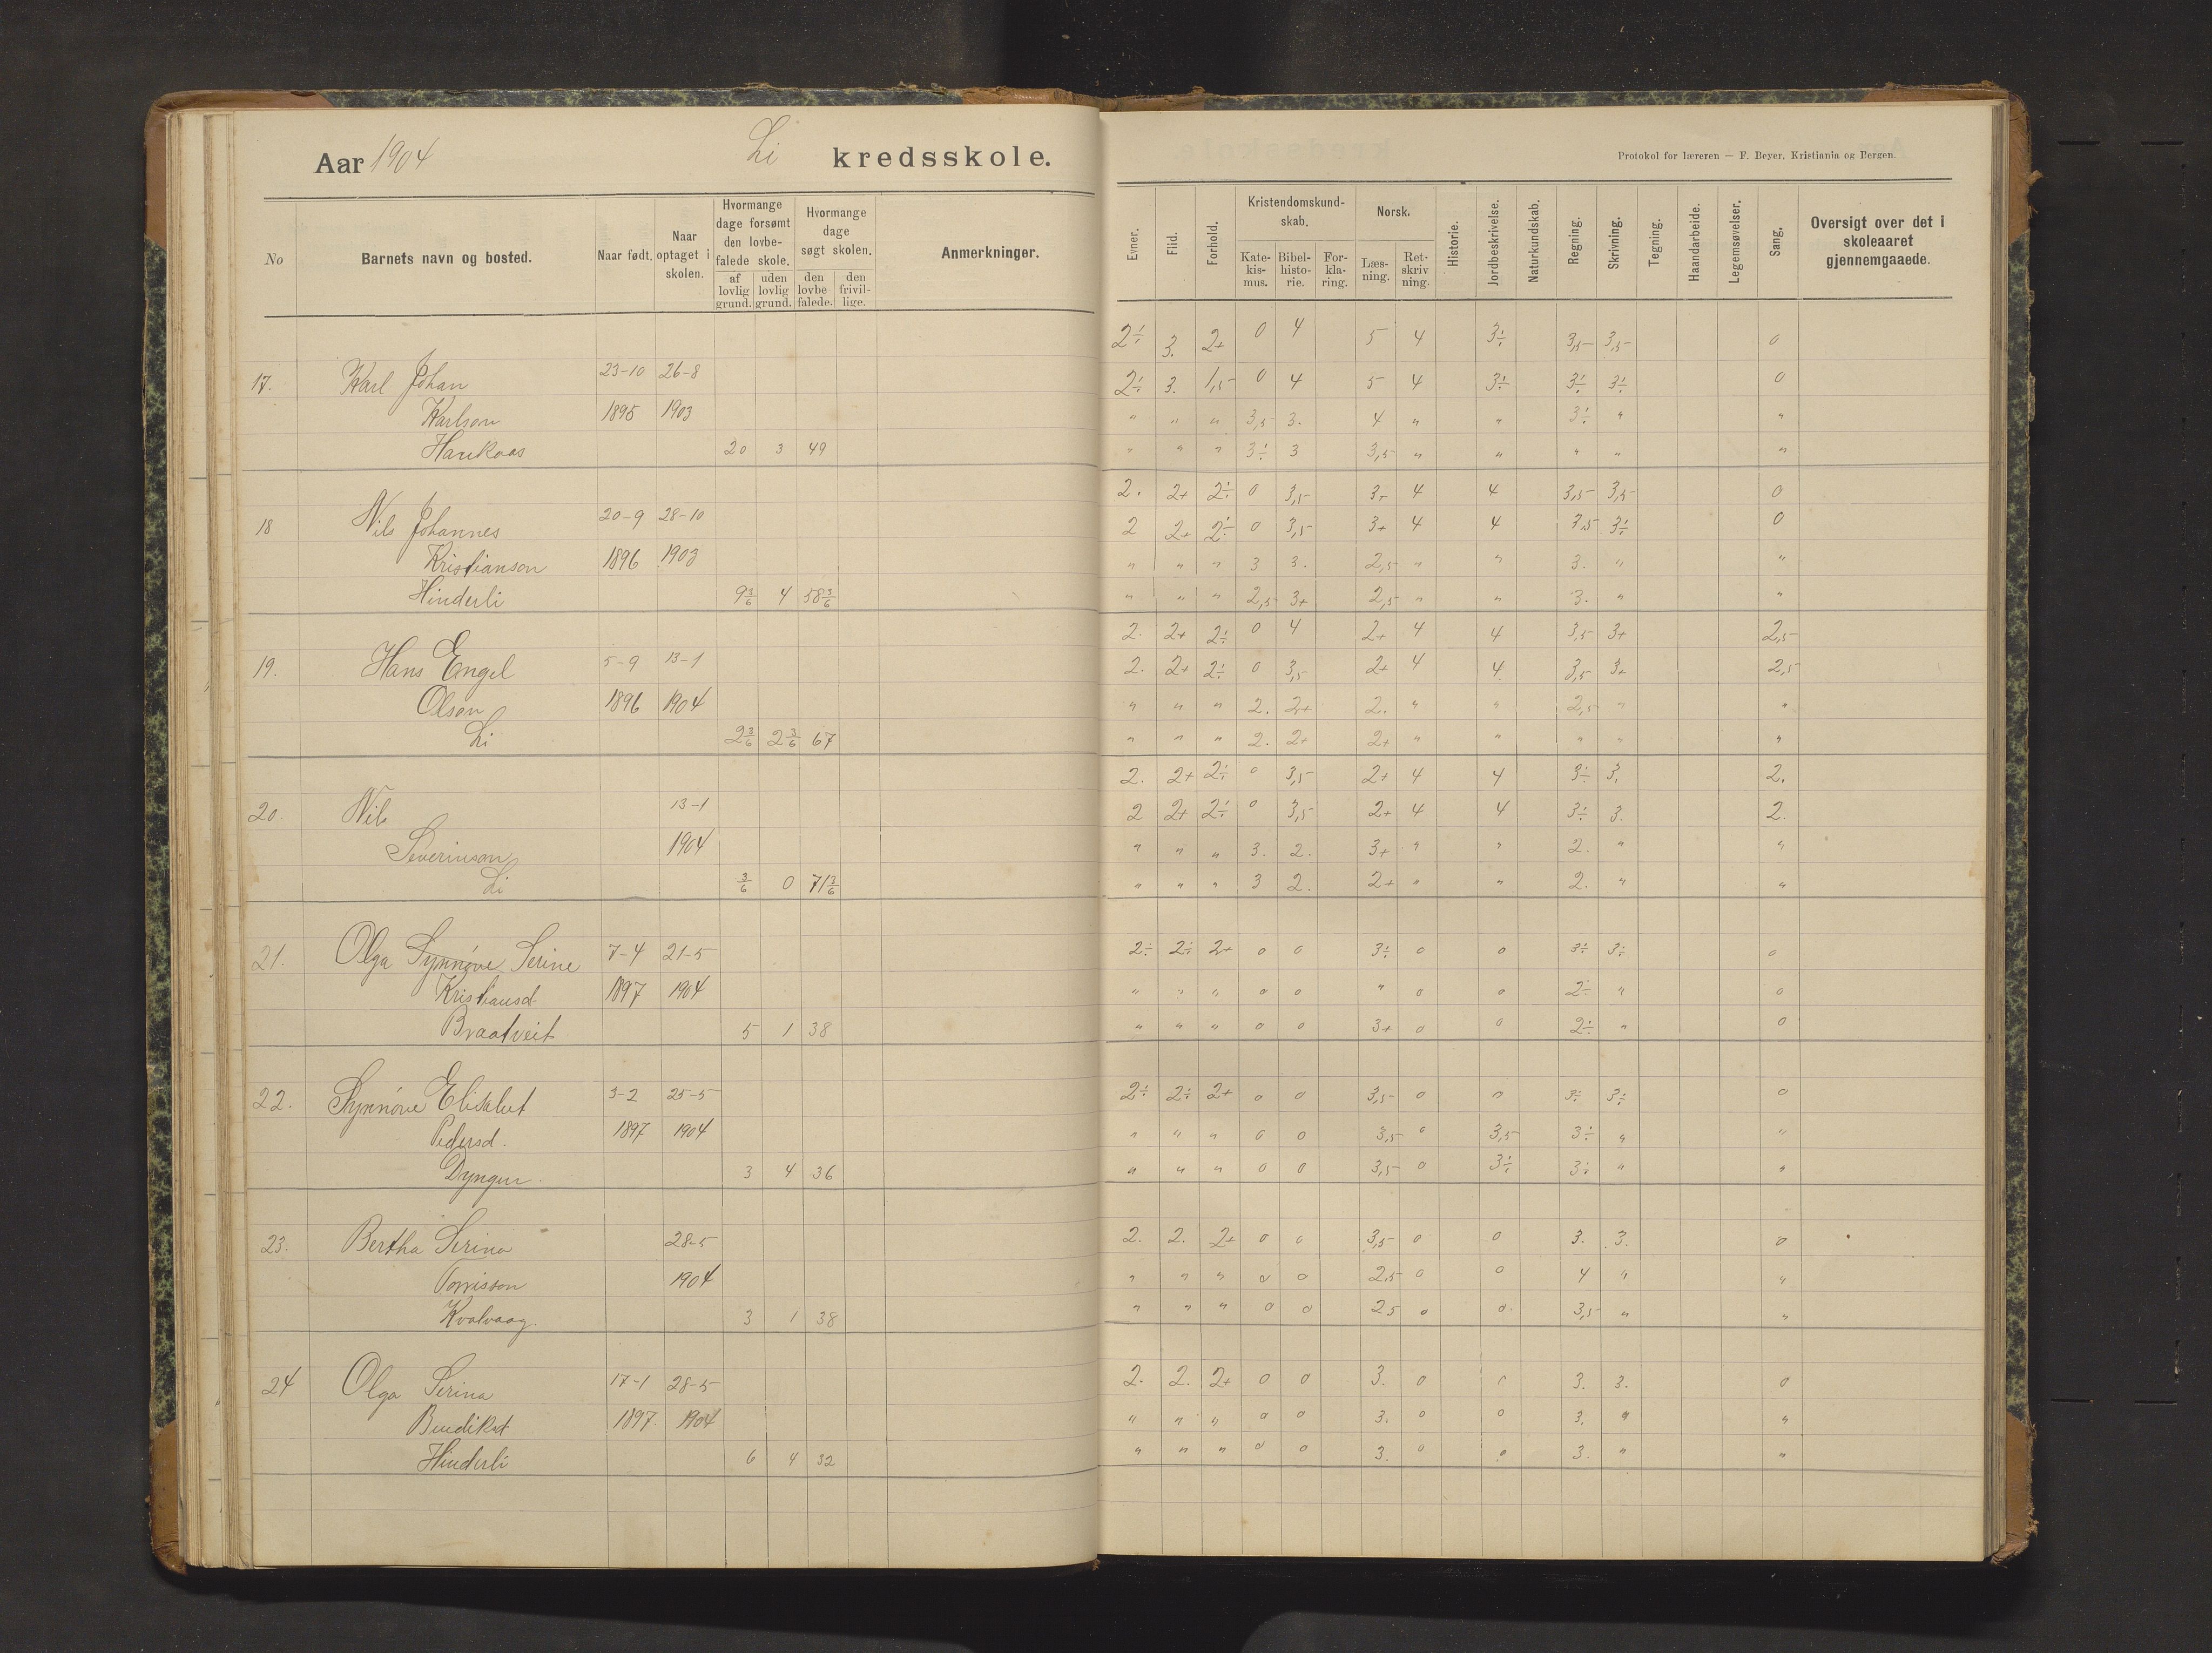 Aar 1904 Li kredsskole.
Protokol for læreren — F. Beyer, Kristiania og Bergen.
No
Barnets navn og bosted.
Naar født.
Naar optaget i skolen.
Hvormange dage forsømt den lovbefalede skole.
af lovlig grund.
uden lovlig grund.
Hvormange dage søgt skolen.
den lovbe falede.
den frivillige.
Anmerkninger.
Evner.
Flid.
Forhold.
Kristendomskundskab.
Katekismus.
Bibelhistorie.
Forklaring.
Norsk.
Læsning.
Retskriv ning.
Historie.
Jordbeskrivelse.
Naturkundskab.
Regning.
Skrivning.
Tegning.
Haandarbeide.
Legemsøvelser.
Sang.
Oversigt over det i skoleaaret gjennemgaaede.
2÷ 3. 2+ 0 4 5 4 3÷ 3,5 3,5 0
17. Karl Johan 23-10 26-8 2÷ 3. 1,5 0 4 5 4 3÷ 3÷ 3÷ 0
Karlson 1895 1903 " " " 3,5 3. 4 " " 3÷ " "
Haukaas 20 3 49 " " " 3÷ 3 3,5 " " " " "
2. 2+ 2÷ 0 3,5 3+ 4 4 3,5 3,5 0
18 Nils Johannes 20-9 28-10 2 2+ 2÷ 0 3,5 3+ 4 4 3,5 3÷ 0
Kristianson 1896 1903 " " " 3 3. 2,5 " " 3. " "
Hinderli 9 3/6 4 58 3/6 " " " 2,5 3+ 2,5 " " 3. " "
2. 2+ 2÷ 0 4 2+ 4 4 3,5 3+ 2,5
19. Hans Engel 5-9 13-1 2. 2+ 2÷ 0 3,5 2+ 4 4. 3,5 3+ 2,5
Olson 1896 1904 " " " 2. 2+ 2. " " 2,5 " "
Li 2 3/6 2 3/6 67 " " " 2. 2+ 2+ " " " " "
2. 2+ 2÷ 0 3,5 2+ 4 4 3÷ 3. 2.
20. Nils 13-1 2 2+ 2÷ 0 3,5 2+ 4 4 3÷ 3. 2.
Severinson 1904 " " " 3. 2. 3+ " " 2. " "
Li 3/6 0 71 3/6 " " " 3 2. 2+ " " 2. " "
21. Olga Synnøve Serine 7-4 21-5 2÷ 2÷ 2+ 0 0 3÷ 0 0 3÷ 3÷ 0
Kristiansd. 1897 1904 " " " 0 0 " 0 0 2÷ " 0
Braatveit 5 1 38 " " " 0 0 3+ 0 0 2÷ " 0
22. Synnøve Elisabet 3-2 25-5 2÷ 2÷ 2+ 0 0 3,5 0 0 3÷ 3÷ 0
Pedersd. 1897 1904 " " " 0 0 3,5 0 3,5 3÷ " "
Dyngen. 3 4 36 " " " 0 0 3,5 0 3÷ 3÷ " "
23. Bertha Serina 28-5 2. 2. 2+ 0 0 3,5 0 0 3. 3. 0
1904 " " " 0 0 2,5 0 0 4 " "
Kvalvaag. 3 1 38 " " " 0 0 2,5 0 0 3,5 " "
24 Olga Serina 17-1 28-5 2. 2. 2+ 0 0 3. 0 0 3. 3. 0
1897. 1904 " " " 0 0 3. 0 0 3. " "
Hinderli 6 4 32 " " " 0 0 3. 0 0 3. " "